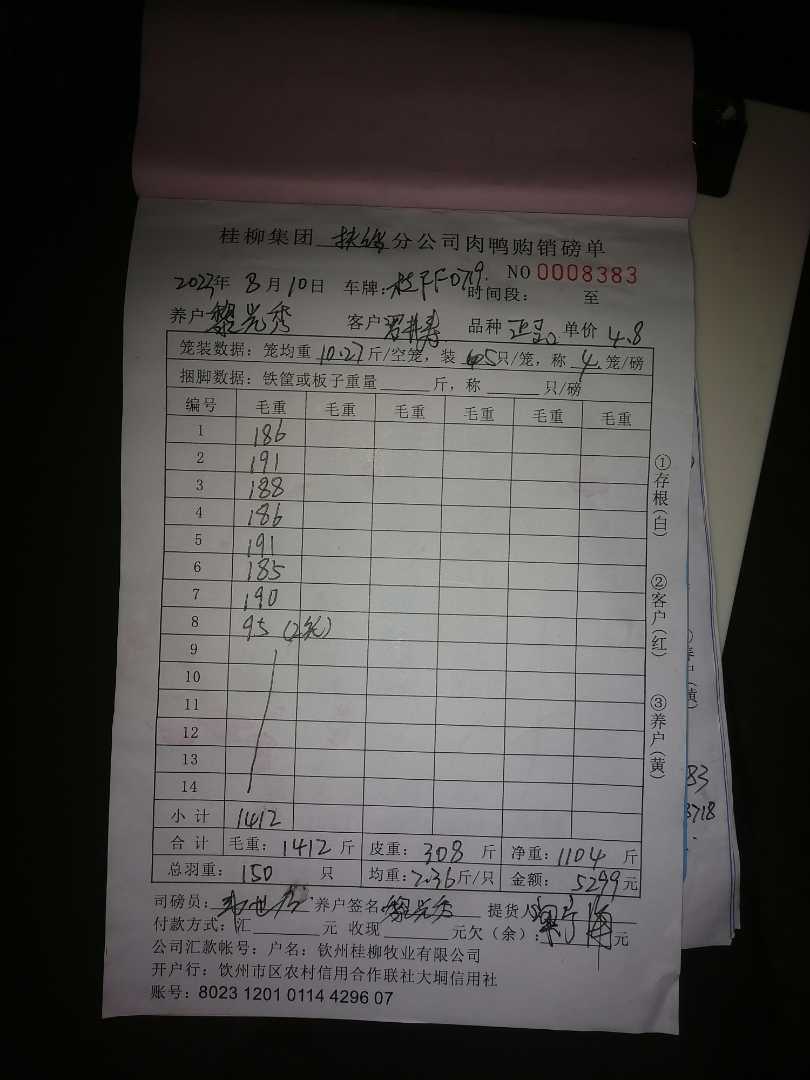 桂柳集团 扶绥 分公司肉鸭购销磅单
2023年 8月10日 车牌: 桂FF0719. NO 0008383
时间段: 至
养户 黎兰秀 客户 品种 正品 单价 4.8
笼装数据: 笼均重 10.27 斤/空笼, 装 5只/笼, 称 4 笼/磅
捆脚数据: 铁筐或板子重量 斤, 称 只/磅
编号 毛重 毛重 毛重 毛重 毛重 毛重
1 186
2 191
3 188
4 186
5 191
6 185
7 190
8 95 (2笼)
9
10
11
12
13
14
小计 1412
合计 毛重: 1412 斤 皮重: 308 斤 净重: 1104 斤
总羽重: 150 只 均重: 7.36斤/只 金额: 5299元
司磅员: 养户签名 黎兰秀 提货人
付款方式: 汇 元 收现 元欠(余): 元
公司汇款帐号: 户名: 钦州桂柳牧业有限公司
开户行: 钦州市区农村信用合作联社大垌信用社
账号: 8023 1201 0114 4296 07
①存根(白)
②客户(红)
③养户(黄)
83
3718